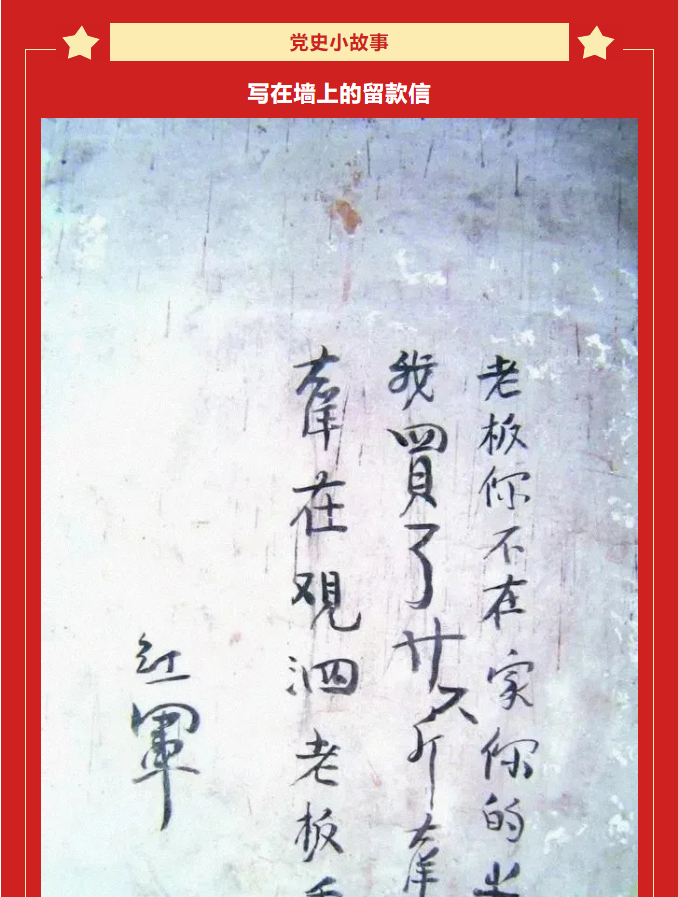 党史小故事
写在墙上的留款信
老板你不在家你的
我買了廿六斤大洋
大洋在观泗老板
红軍